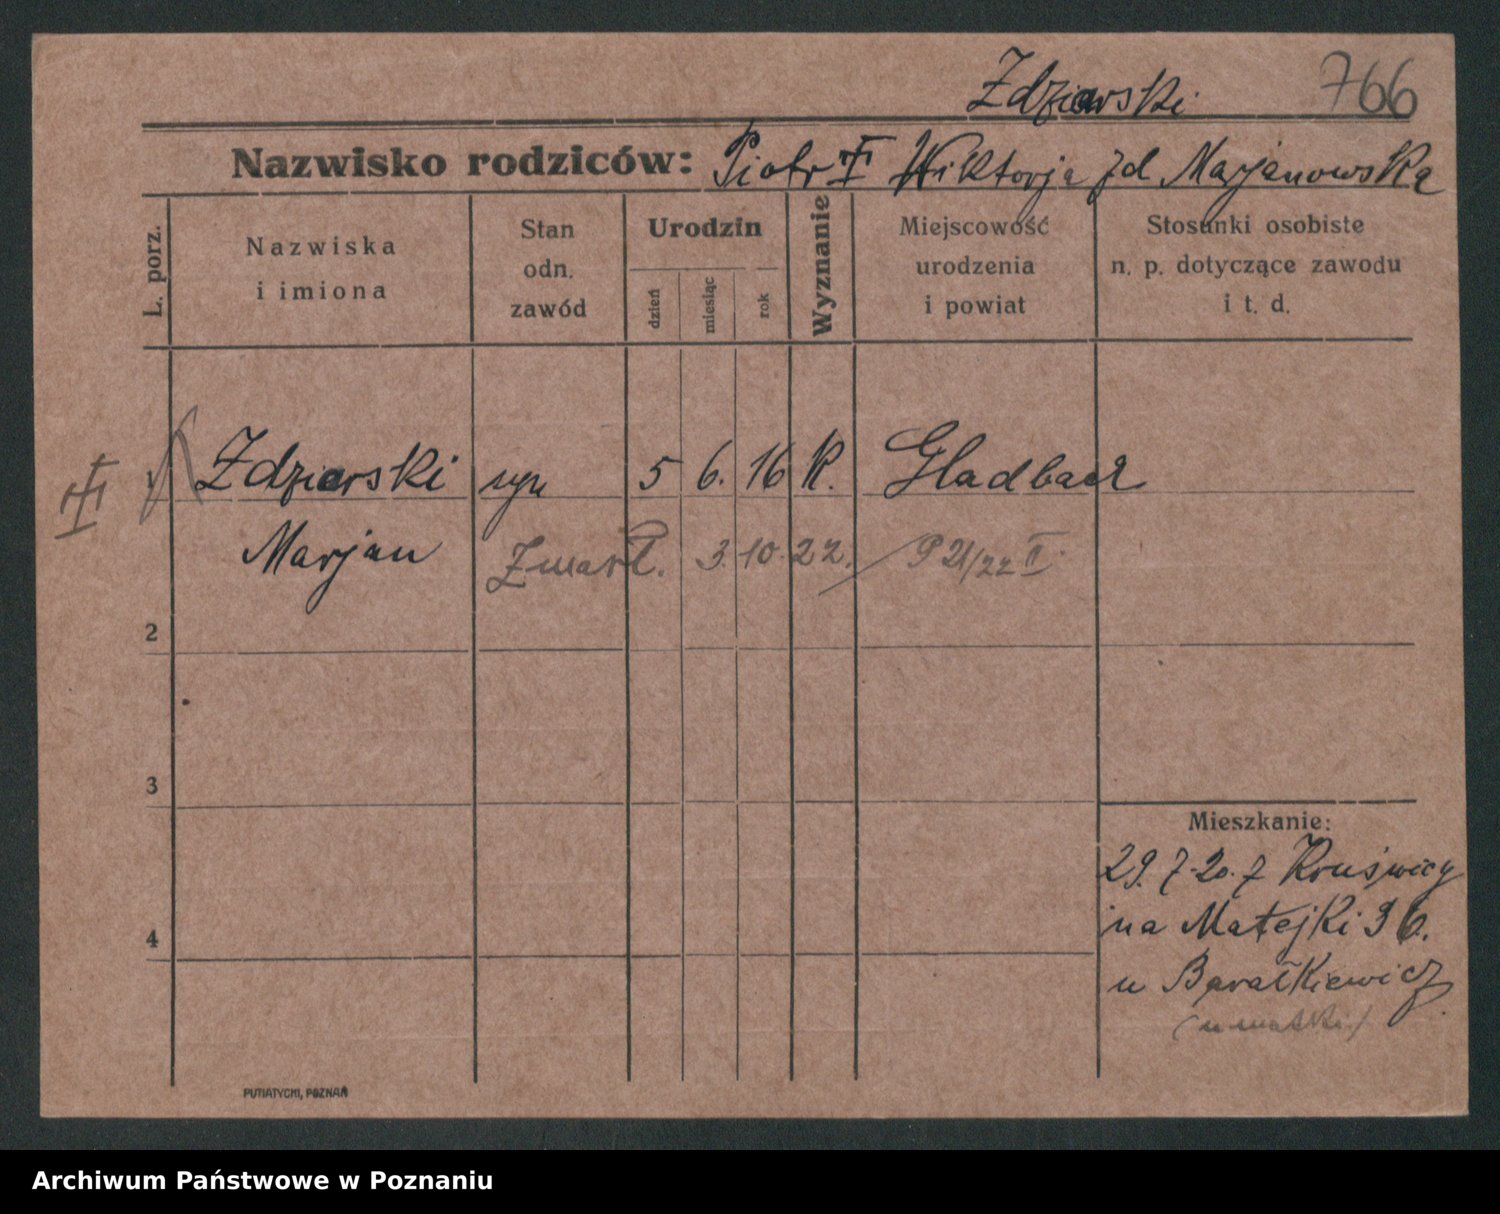 Zdziarski 766
Nazwisko rodziców: Piotr Wiktorja zd Marjanowska
L. porz.
Nazwiska i imiona
Stan odn. zawód
Urodzin
dzień
miesiąc
rok
Wyznanie
Miejscowość urodzenia i powiat
Stosunki osobiste n. p. dotyczące zawodu i t. d.
1 Zdziarski syn 5 6. 16 K. Gladbach
Marjan Zmarł. 3. 10. 22. P 21/22 II.
2
3
4
Mieszkanie:
29. 7. 20. z Kruświcy
na Matejki 36.
u Barałkiewicz.
(u matki)
PUTIATYCKI, POZNAŃ
Archiwum Państwowe w Poznaniu